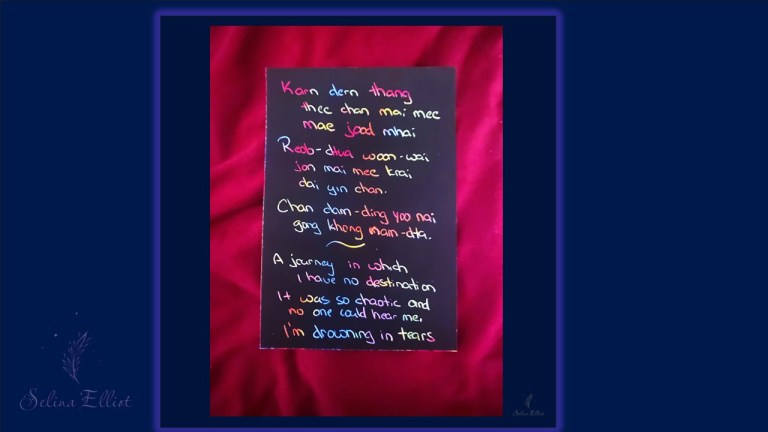 Karn dern thang
thee chan mai mee
mae jood mhai
Reob-dtua woon-wai
jon mai mee krai
dai yin chan.
Chan dam-ding yoo nai
gong khong nam-dta.
A journey in which
I have no destination
It was so chaotic and
no one could hear me.
I'm drowning in tears
Selina Elliot
Selina Elliot